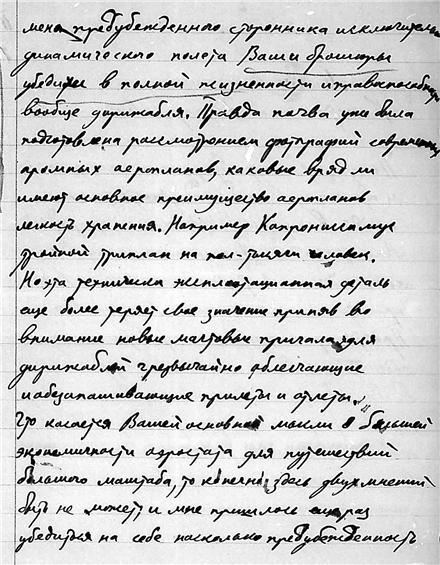 меня предубежденного сторонника исключительно
динамического полета Ваши брошюры
убедили в полной жизненности и правоспособности
вообще дирижабля. Правда почва уже была
подготовлена рассмотрением фотографий современных
громпых аеропланов, каковые вряд ли
имеют основное преимущество аеропланов
легкость хранения. Например Капрониевамус
тройной триплан на пол-тысячи человек.
Но эта техническа жеплотационная деталь
еще более теряет свое значение приняв во
внимание новые мачтовые причала для
дирижаблей чрезвычайно облегчающие
и обезапашивающие прилеты и отлеты.
Что касается Вашей основной мысли о большей
экономичности аэростата для путешествий
большого маштаба, то конечно здесь двух мнений
быть не может, и мне пришлось еще раз
убедиться на себе насколько предубежденность